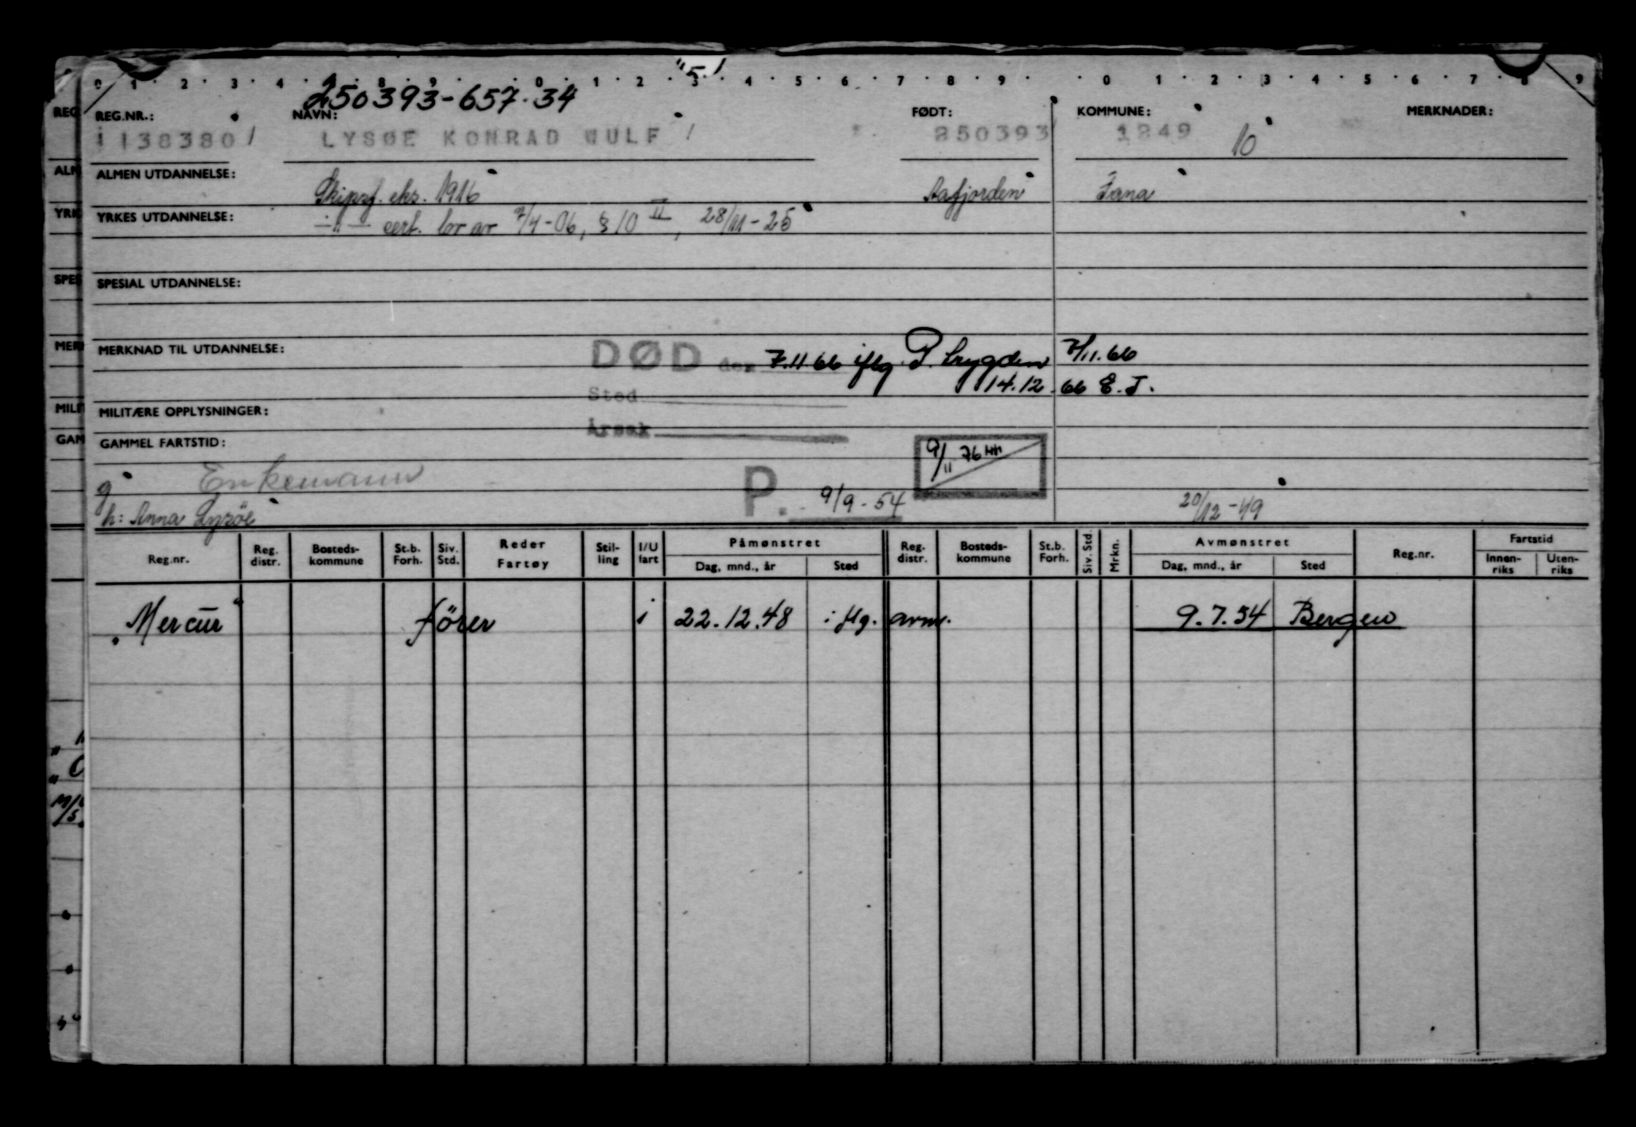 0 1 2 3 4 8 9 0 1 2 3 4 5 6 7 8 9 0 1 2 3 4 5 6 7 8 9
"5!
250393-657.34
REG.NR.: NAVN: FØDT: KOMMUNE: MERKNADER:
1138380 / LYSØE KONRAD WULF / 250393 1249 10
ALMEN UTDANNELSE: Skipsf. eks. 1916 Aafjorden Fana
YRKES UTDANNELSE: —"— cert. lov av 9/4-06, § 10 II, 28/11-25
SPESIAL UTDANNELSE:
MERKNAD TIL UTDANNELSE: DØD den 7.11.66 iflg. P. trygden 7/11.66
14.12.66 E.J.
Sted
MILITÆRE OPPLYSNINGER:
Årsak
GAMMEL FARTSTID:
9/11 76
g Enkemann
P. 9/9-54
h: Anna Lysöe 20/12-49
Reg.nr. Reg. distr. Bosteds- kommune St.b. Forh. Siv. Std. Reder Fartøy Stil- ling I/U fart Påmønstret Dag, mnd., år Sted Reg. distr. Bosteds- kommune St.b. Forh. Siv. Std. Mrkn. Avmønstret Dag, mnd., år Sted Reg.nr. Fartstid Innen- riks Uten- riks
"Mercur" förer i 22.12.48 iflg. avm. 9.7.54 Bergen